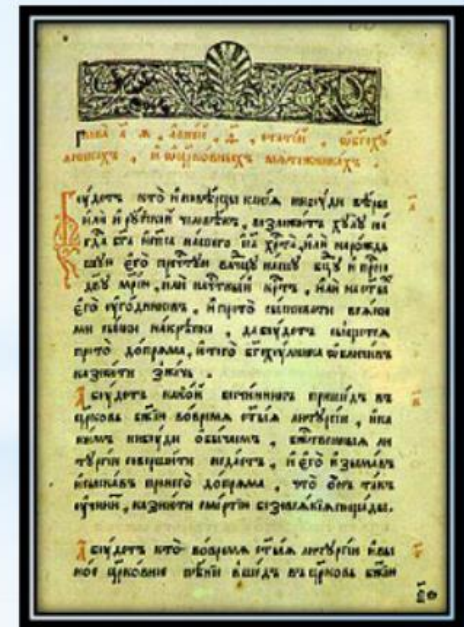 Глава а҃ я , а вне́й , ѳ҃ , статей , ѡбг҃охꙋ
лникахъ , и ѡцр҃ковныхъ мятежникахъ .
Бꙋдетъ кто иновѣрцы какія нибꙋди вѣры
или и рꙋскїи человѣкъ , возложитъ хꙋлꙋ на
гд҃а бг҃а и сп҃са нашего іс҃а хр҃та , или на рождь
шꙋю его прч҃тꙋю влчцꙋ нашꙋ бц҃ꙋ и присно
дв҃ꙋ мр҃їю , или на чт҃ныи кр҃тъ , или на ст҃ыхъ
его ꙋгодниковъ , и про то сыскивати всяки
ми сыски накрѣпко , да бꙋдетъ сыщется
про то допряма , и того бг҃охꙋлника ѡбличивъ
казнити зжечь .
А бꙋдетъ какои бесчинникъ пришедъ въ
цр҃ковь бж҃їю во время ст҃ыя литꙋргїи , и ка
кимъ нибꙋди обычаемъ , бж҃ественныя ли
тꙋргїи совершити недастъ , и его изымавъ
и сыскавъ пронего допряма , что онъ такъ
ꙋчинитъ , казнити смертїю безовсякїя пощады .
А бꙋдетъ кто во время ст҃ыя литꙋргїи и вы
ное цр҃ковное пѣнїе вшедъ въ цр҃ковь бж҃їю